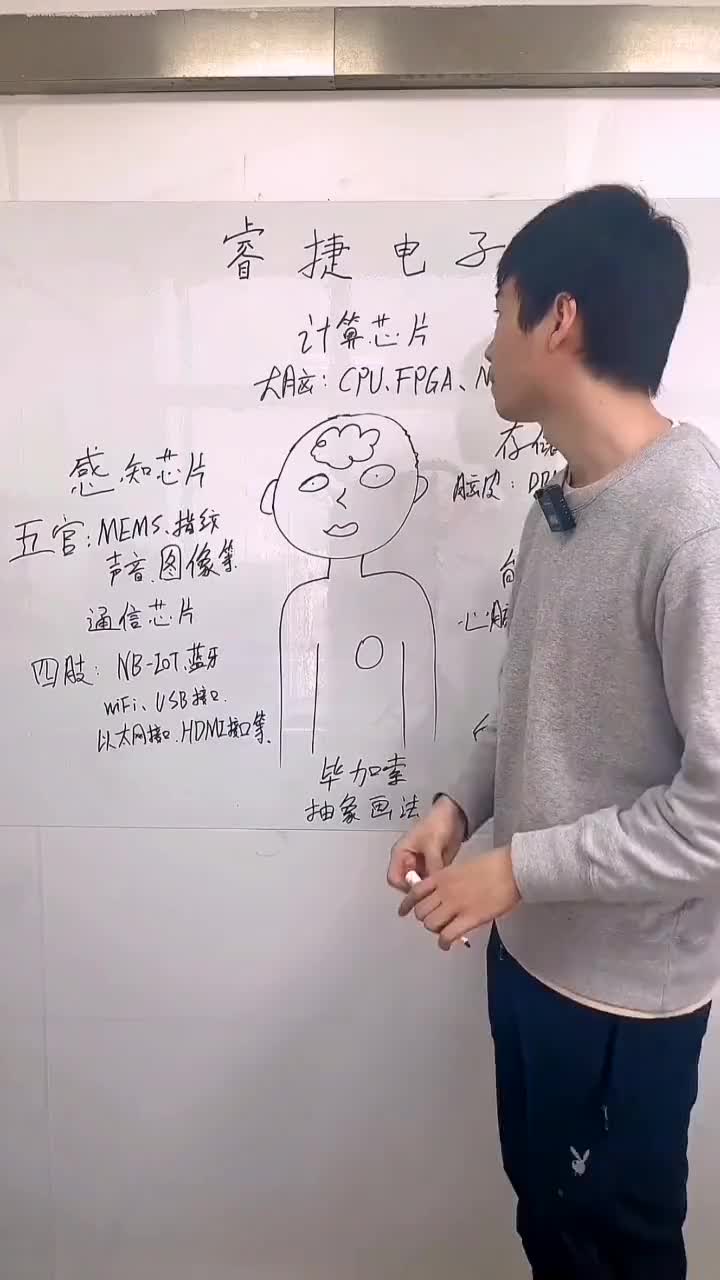 睿捷电子
计算芯片
大脑：CPU、FPGA、N
感知芯片
五官：MEMS、指纹
声音、图像等
通信芯片
四肢：NB-IOT、蓝牙
WiFi、USB接口、
以太网接口、HDMI接口等
存储
脑皮：DR
心脏
毕加索
抽象画法